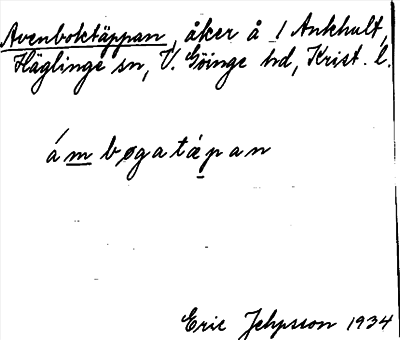 Avenboktäppan, åker å 1 Ankhult,
Häglinge sn, V. Göinge hd, Krist. l.
ámbøgatæpan
Eric Jehpsson 1934